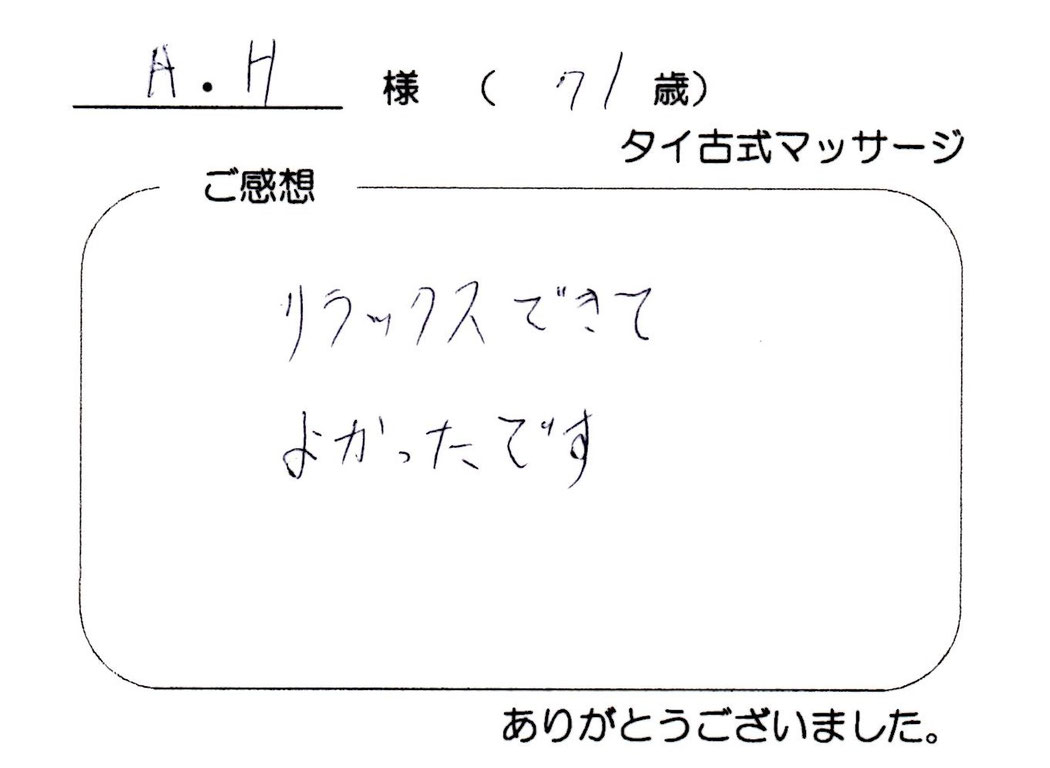 A.H 様 ( 71歳)
タイ古式マッサージ
ご感想
リラックスできて
よかったです
ありがとうございました。